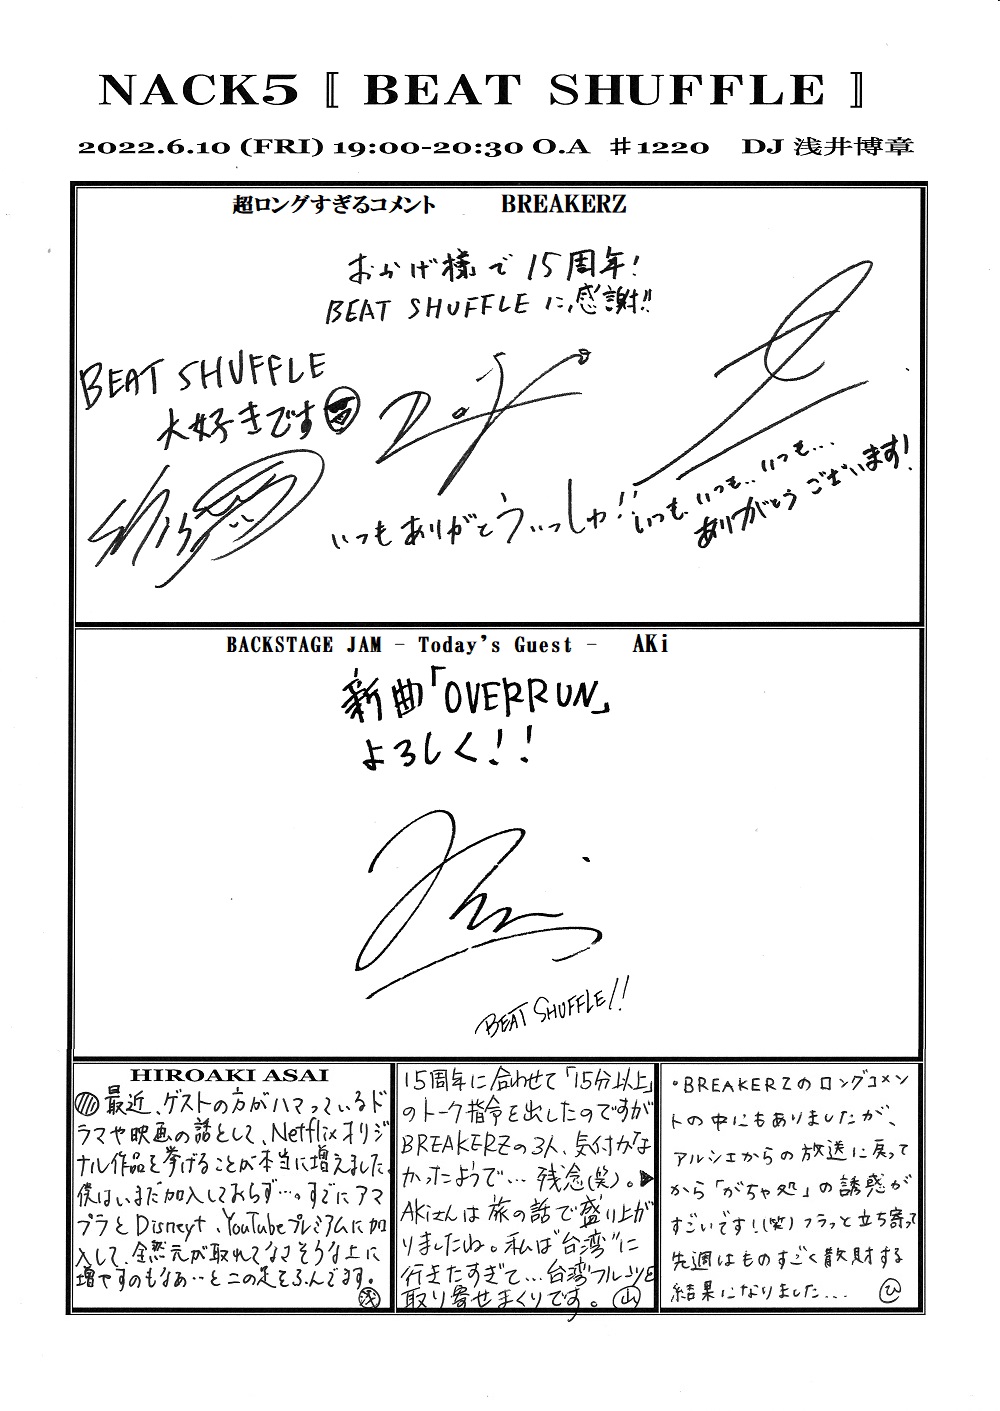 NACK5 〚 BEAT SHUFFLE 〛
2022.6.10 (FRI) 19:00-20:30 O.A ♯1220 DJ 浅井博章
超ロングすぎるコメント BREAKERZ
おかげ様で15周年!
BEAT SHUFFLEに感謝!!
BEAT SHUFFLE
大好きです
いつもありがとうぃっしゅ!!
いつも いつも… いつも…
ありがとうございます!
BACKSTAGE JAM - Today's Guest - AKi
新曲「OVERRUN」
よろしく!!
BEAT SHUFFLE!!
HIROAKI ASAI
最近、ゲストの方がハマっているド
ラマや映画の話として、Netflixオリジ
ナル作品を挙げることが本当に増えました。
僕はいまだ加入しておらず…。すでにアマ
プラとDisney+、YouTubeプレミアムに加
入して、全然元が取れてなさそうな上に
増やすのもなあ…と二の足をふんでます。
浅
15周年に合わせて「15分以上」
のトーク指令を出したのですが
BREAKERZの3人、気付かな
かったようで…残念(笑)。▶
AKiさんは旅の話で盛り上が
りましたね。私は"台湾"に
行きたすぎて…台湾フルーツを
取り寄せまくりです。 山
・BREAKERZのロングコメン
トの中にもありましたが、
アルシェからの放送に戻って
から「がちゃ処」の誘惑が
すごいです!(笑)フラっと立ち寄って
先週はものすごく散財する
結果になりました... ひ